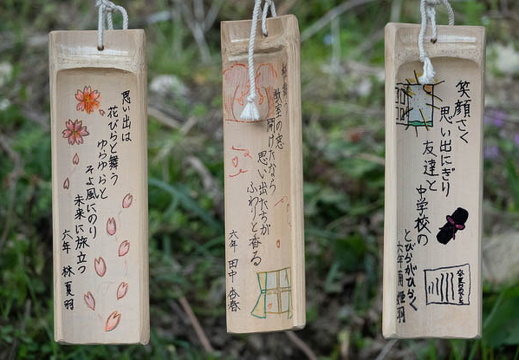 思い出は
花びらと舞う
ゆらゆらと
そよ風にのり
未来に旅立つ
六年 林 夏羽
教室の窓
開けたなら
思い出たちが
ふわりと香る
六年 田中
笑顔さく
思い出にぎり
友達と
中学校の
とびらがひらく
六年